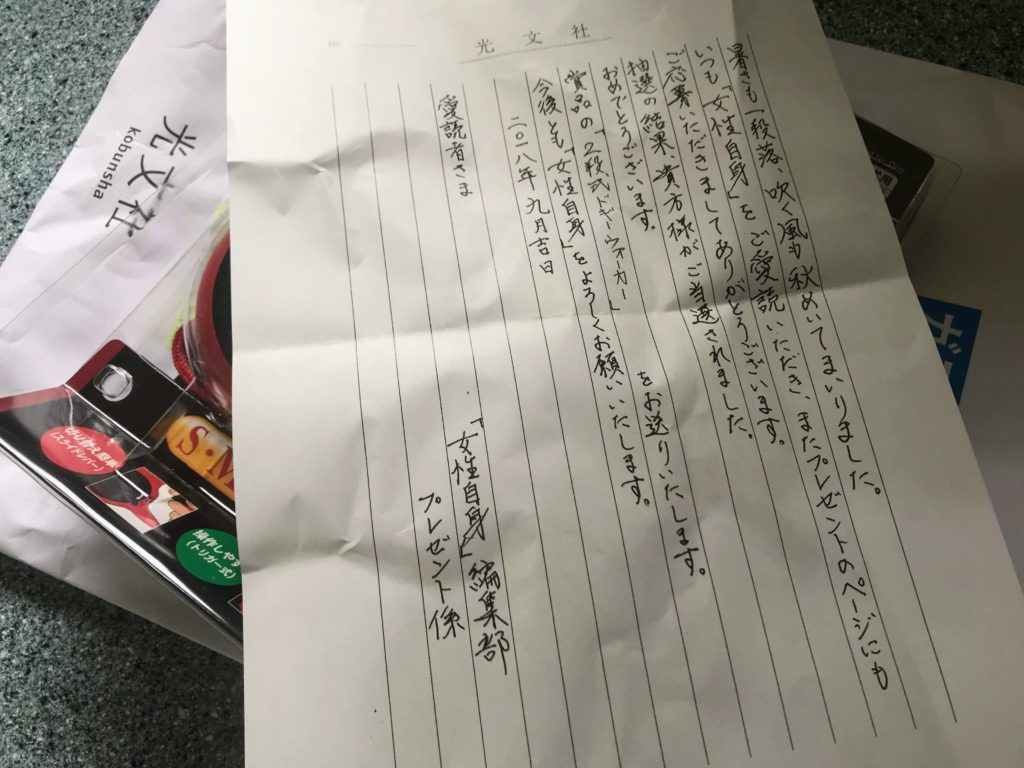 光文社
No.
暑さも一段落、吹く風も秋めいてまいりました。
いつも「女性自身」をご愛読いただき、またプレゼントのページにも
ご応募いただきましてありがとうございます。
抽選の結果、貴方様がご当選されました。
おめでとうございます。
賞品の「2段式ドギーウォーカー」をお送りいたします。
今後とも「女性自身」をよろしくお願いいたします。
二〇一八年 九月吉日
「女性自身」編集部
プレゼント係
愛読者さま
光文社
kobunsha
S・M
切り替え簡単
(スライドレバー)
操作しやす
(トリガー式)